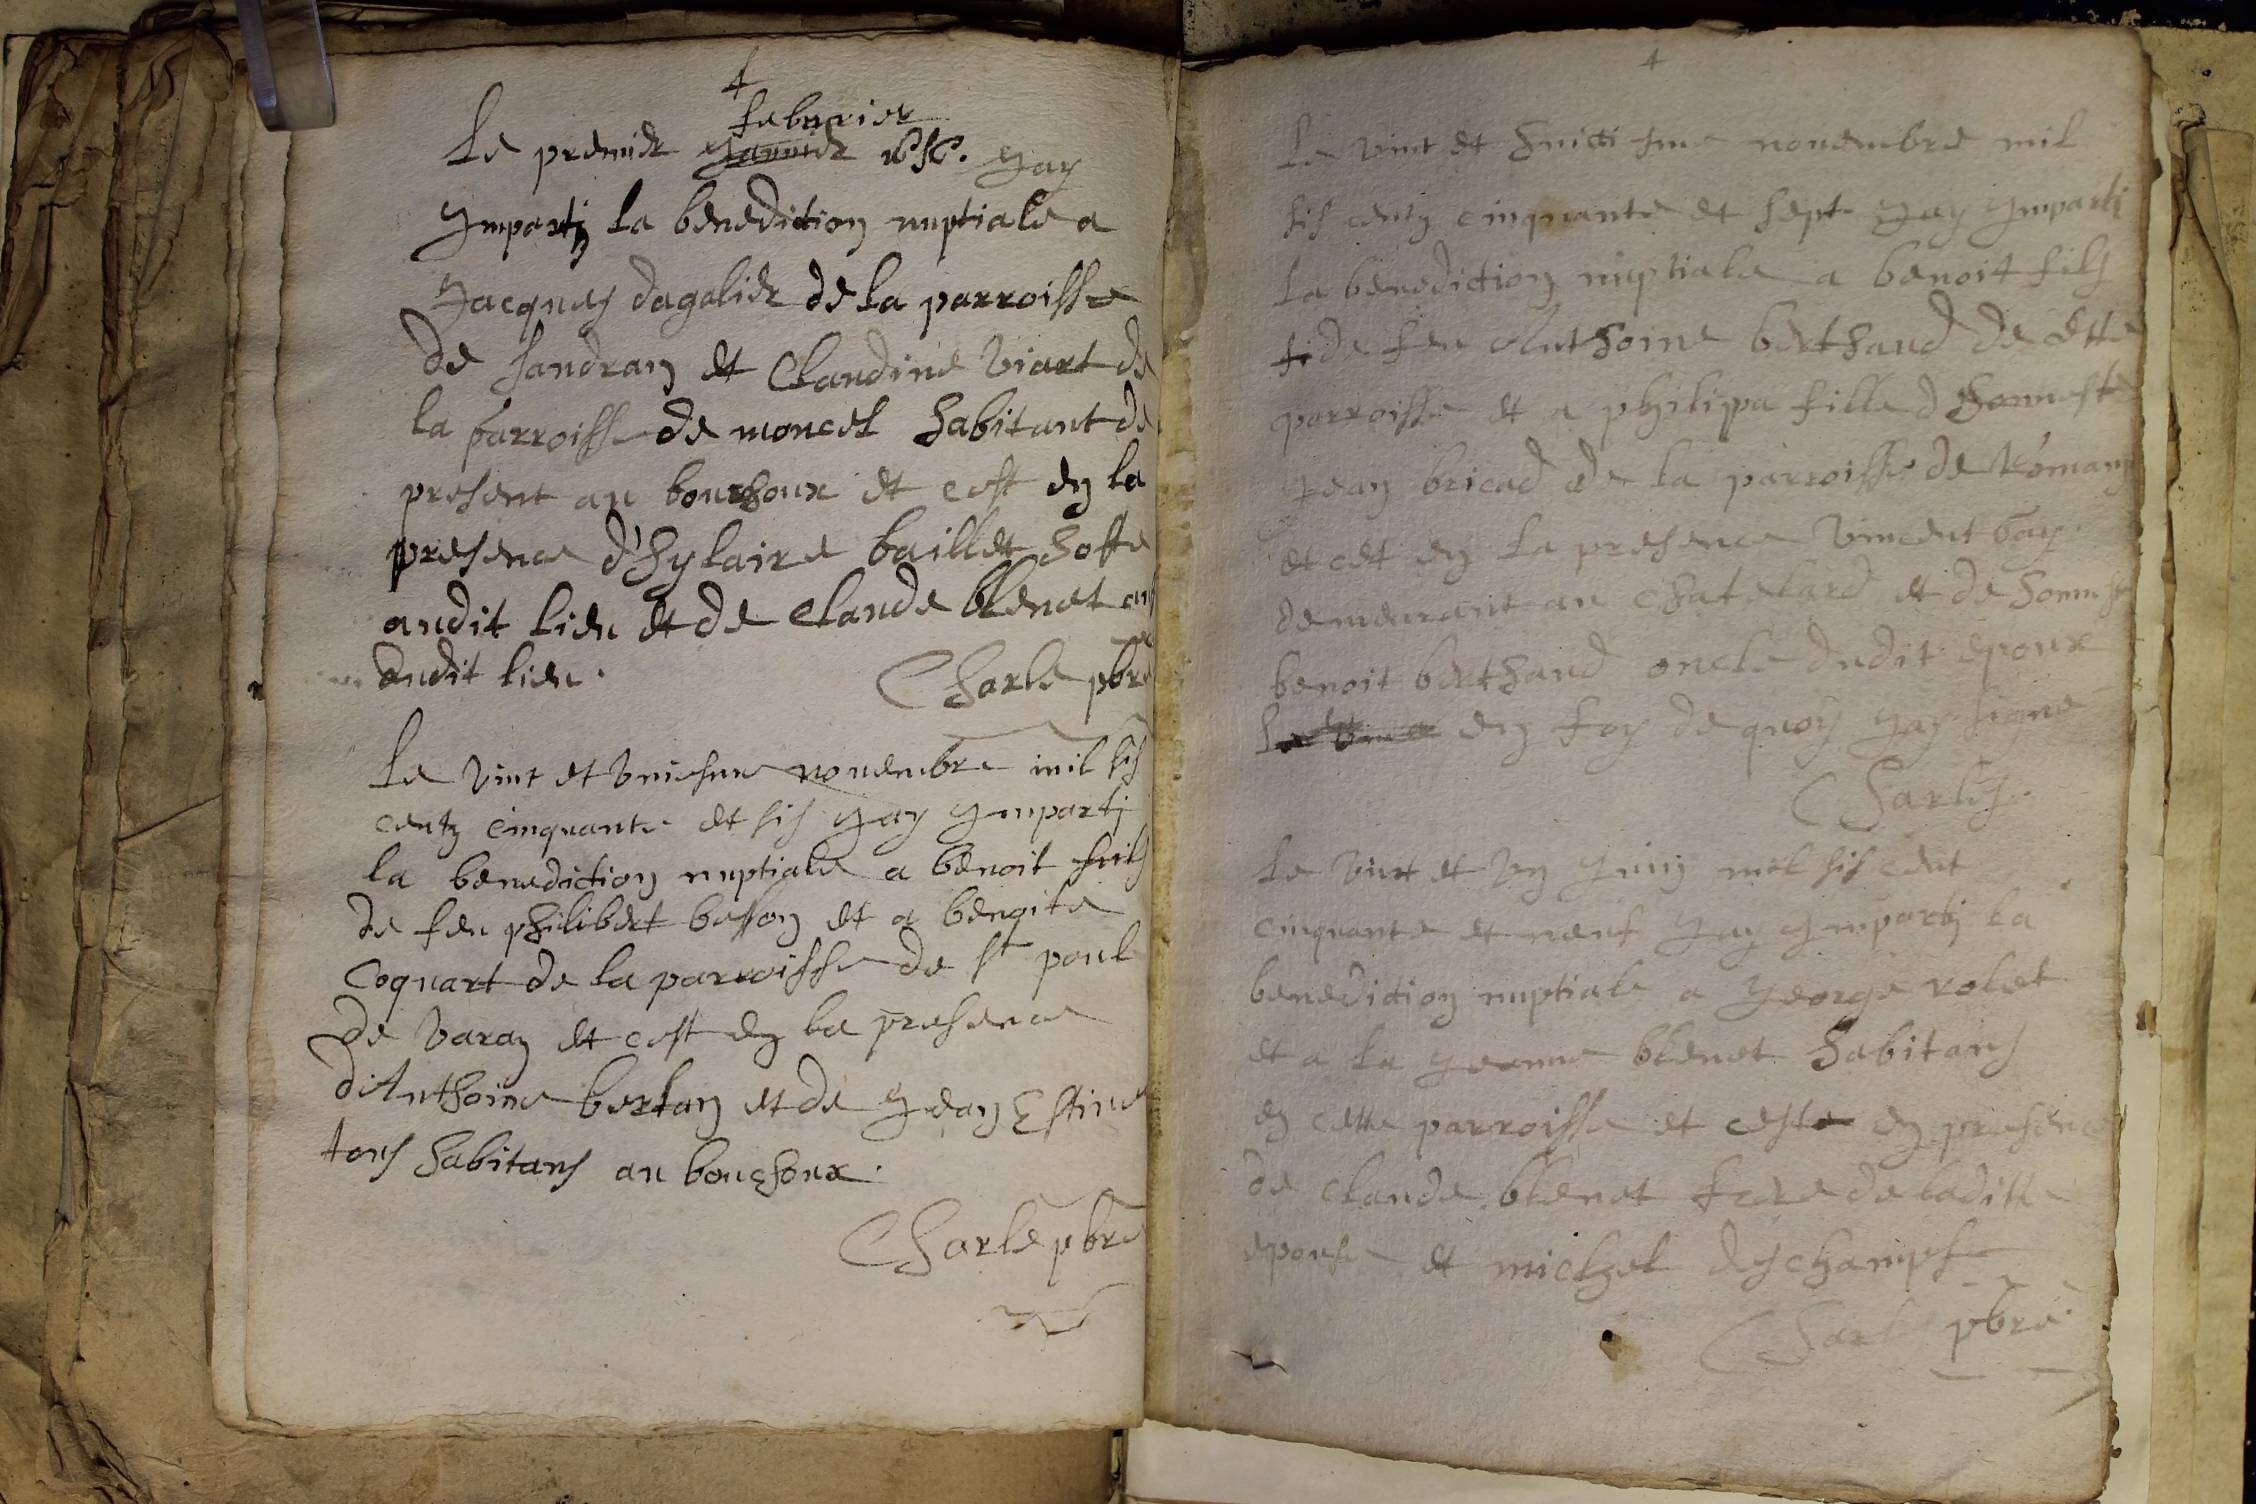 4
februier
Le premier Janvier gay
ymparty la benediction nuptiale a
Jacques dagalier de la parroisse
de sandran et Claudine Viart de
la parroisse de moncel habitant de
present au bouchoux et cest en la
presence d'hylaire baillet hoste
audit lieu et de Claude blenet
dudit lieu.
Charle pbre
Le vint et uniesme novembre mil sis
centz cinquante et sis gay ymparti
la benediction nuptiale a benoit
de feu philibert besson et a benoite
Coquart de la parroisse de st poul
de varan et cest en la presence
d'Anthoine bertan et de Jean Estine
tous habitans au bouchoux.
Charle pbre
4
Le vint et huitti sme novembre mil
sis centz cinquante et sept gay ymparti
la benediction nuptiale a benoit fils
fi de feu Anthoine berthaud de cette
parroisse et a philipa fille d honneste
Jean bricad de la parroisse de Romans
et cet en la presence Vincent bay
demeurant au chatelard et de honneste
benoit berthaud oncle dudit epoux
en foy de quoy gay signe
Charles.
Le vint et un Juin mil sis cent
cinquante et neuf gay ymparti la
benediction nuptiale a George rolet
et a la Jeanne blenet habitans
en cette parroisse et ceste en presence
de Claude blenet frere de laditte
epouse et michel deschamps
Charle pbre